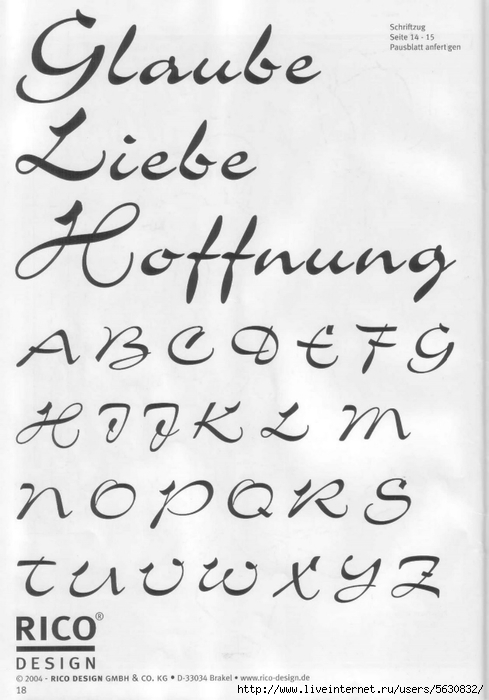 Schriftzug
Seite 14 - 15
Pausblatt anfertigen
Glaube
Liebe
Hoffnung
A B C D E F G
H I J K L M
N O P Q R S
T U V W X Y Z
RICO®
DESIGN
© 2004 - RICO DESIGN GMBH & CO. KG • D-33034 Brakel • www.rico-design.de
18
http://www.liveinternet.ru/users/5630832/